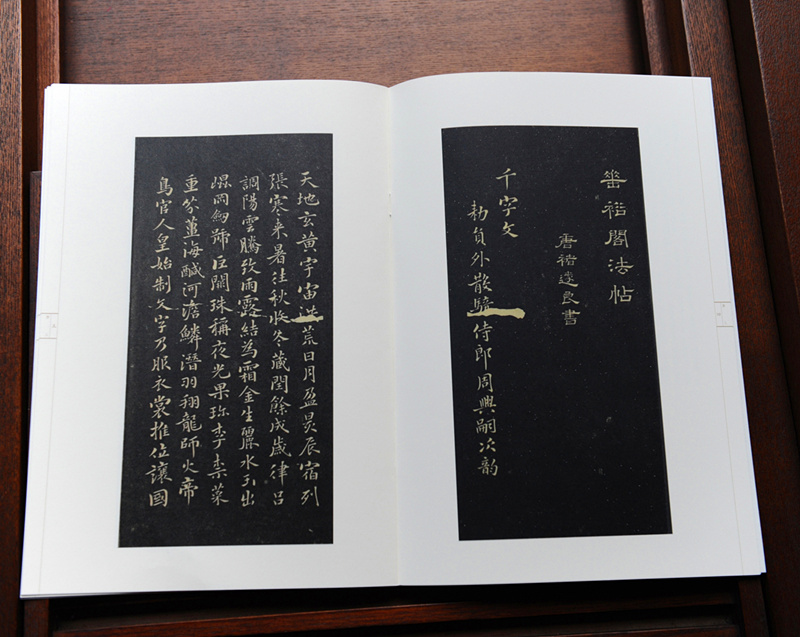 垂裕閣法帖
唐褚遂良書
千字文
勑員外散騎侍郎周興嗣次韵
天地玄黃宇宙洪荒日月盈昃辰宿列
張寒来暑往秋收冬藏閏餘成歲律呂
調陽雲騰致雨露結為霜金生麗水玉出
崐岡劒號巨闕珠稱夜光果珎李柰菜
重芥薑海醎河澹鱗潛羽翔龍師火帝
鳥官人皇始制文字乃服衣裳推位讓國